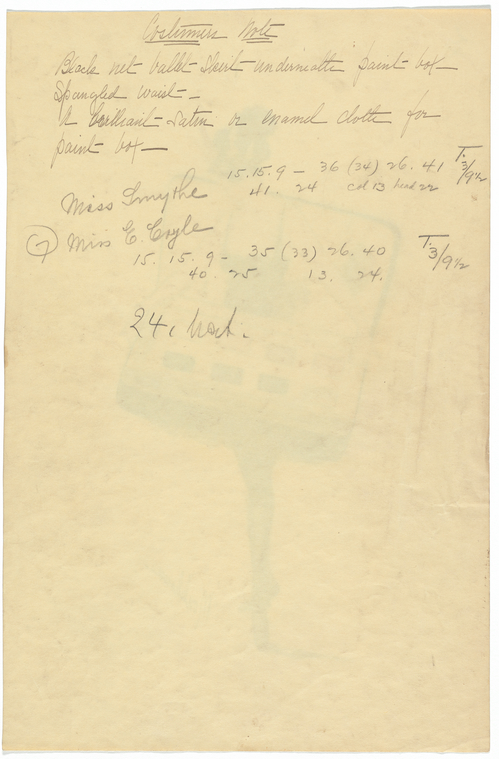 Costumers Note
Black net ballet skirt underneath paint box
Spangled waist
A brilliant satin or enamel cloth for
paint box
Miss Smythe 15. 15. 9 - 36 (34) 26. 41 T. 3/9½
41. 24 col 13 head 22
7 Miss E. Coyle
15. 15. 9 - 35 (33) 26. 40 T. 3/9½
40. 25 13. 24.
24,